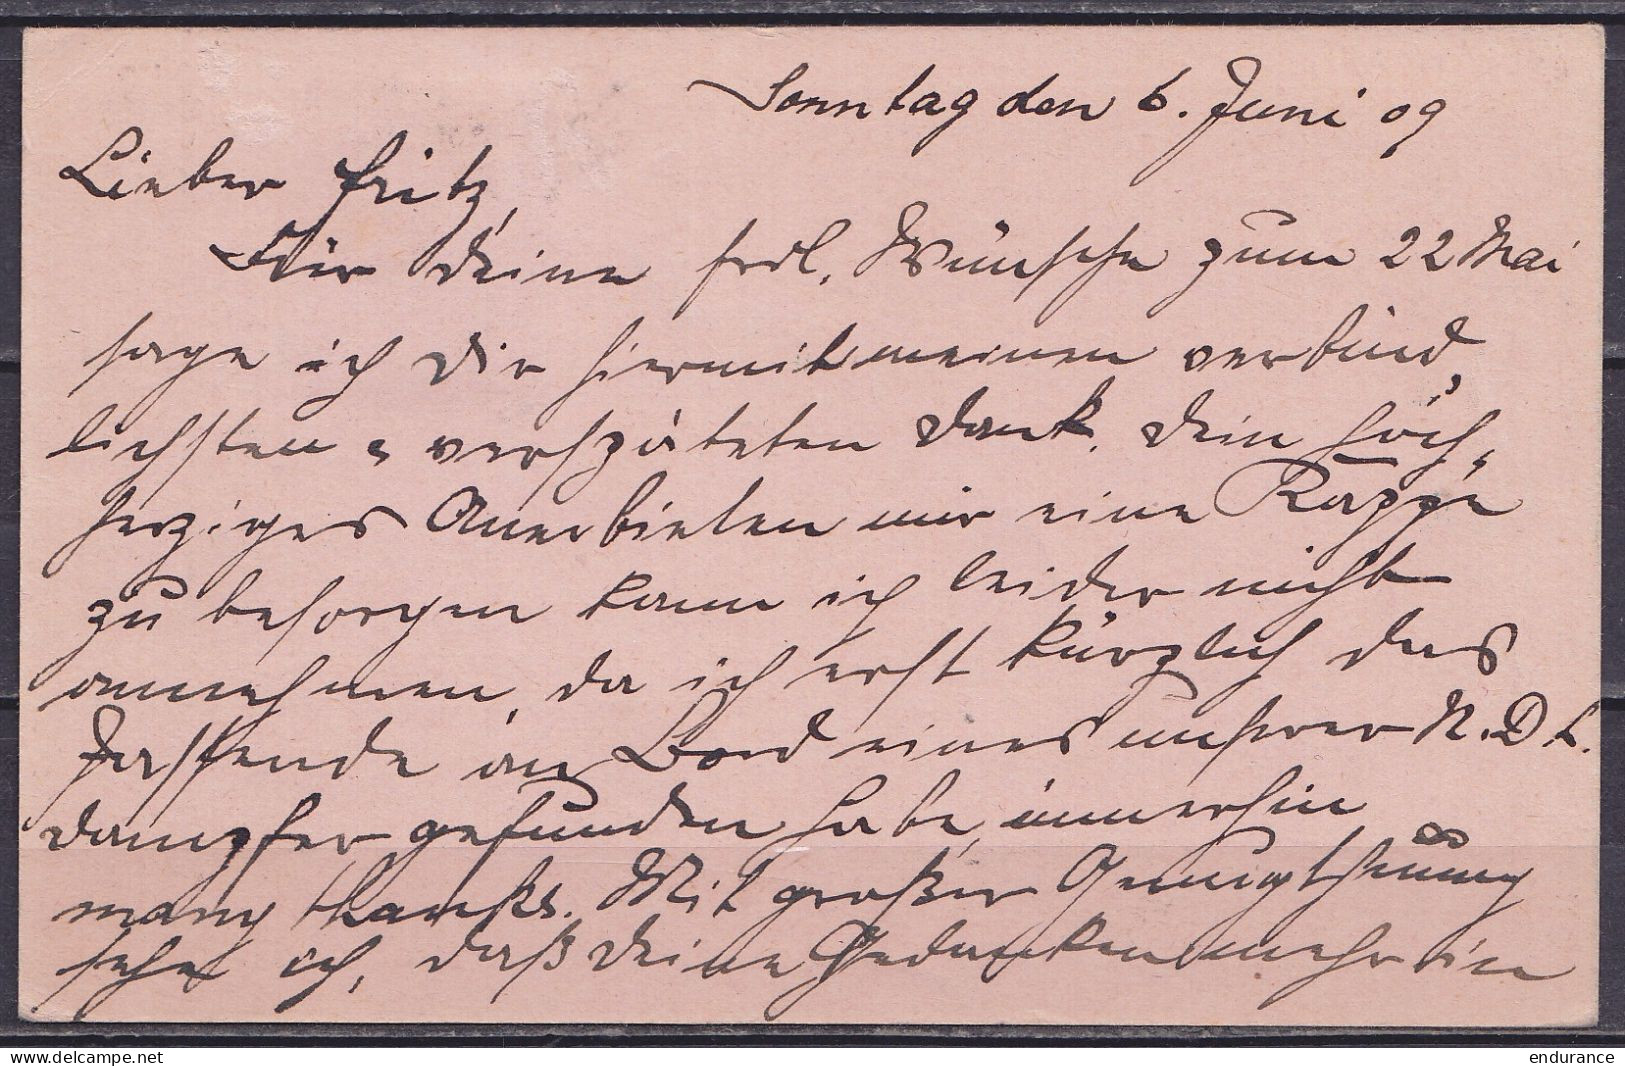 Sonntag den 6. Juni 09
Lieber Fritz,
Für Deine frdl. Wünsche zum 22 Mai
sage ich Dir hiermit meinen verbind-
lichsten u. verspäteten Dank. Dein hoch-
herziges Anerbieten mir eine Kappe
zu besorgen kann ich leider nicht
annehmen, da ich erst kürzlich das
Passende an Bord eines unserer N.D.L.
Dampfer gefunden habe, immerhin
many thanks. Mit großer Genugthuung
sehe ich, daß Deine Gedanken mehr in
endurance
delcampe.net